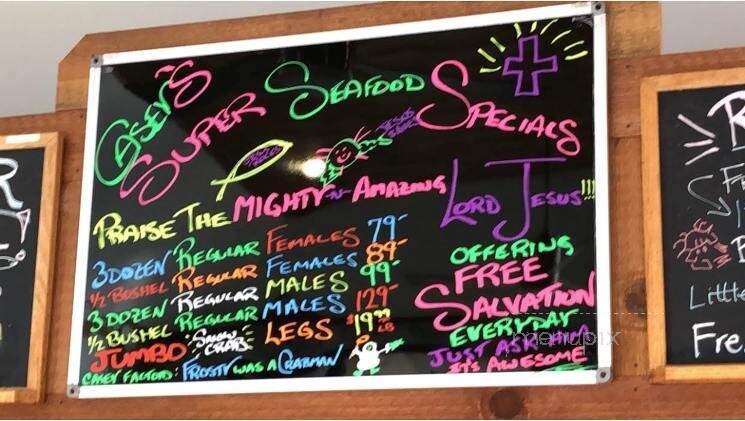 Casey's
Super Seafood Specials
JESUS
Praise The MIGHTY-N-AMAZING
Lord Jesus!!!
3 DOZEN REGULAR FEMALES 79-
1/2 BUSHEL REGULAR FEMALES 89-
3 DOZEN REGULAR MALES 99-
1/2 BUSHEL REGULAR MALES 129-
JUMBO SNOW CRABS LEGS $19.99 LB
CASEY FACTOID: FROSTY WAS A CRABMAN
OFFERING
FREE
SALVATION
EVERYDAY
JUST ASK HIM
IT'S AWESOME
menupix
R
Little
Fre